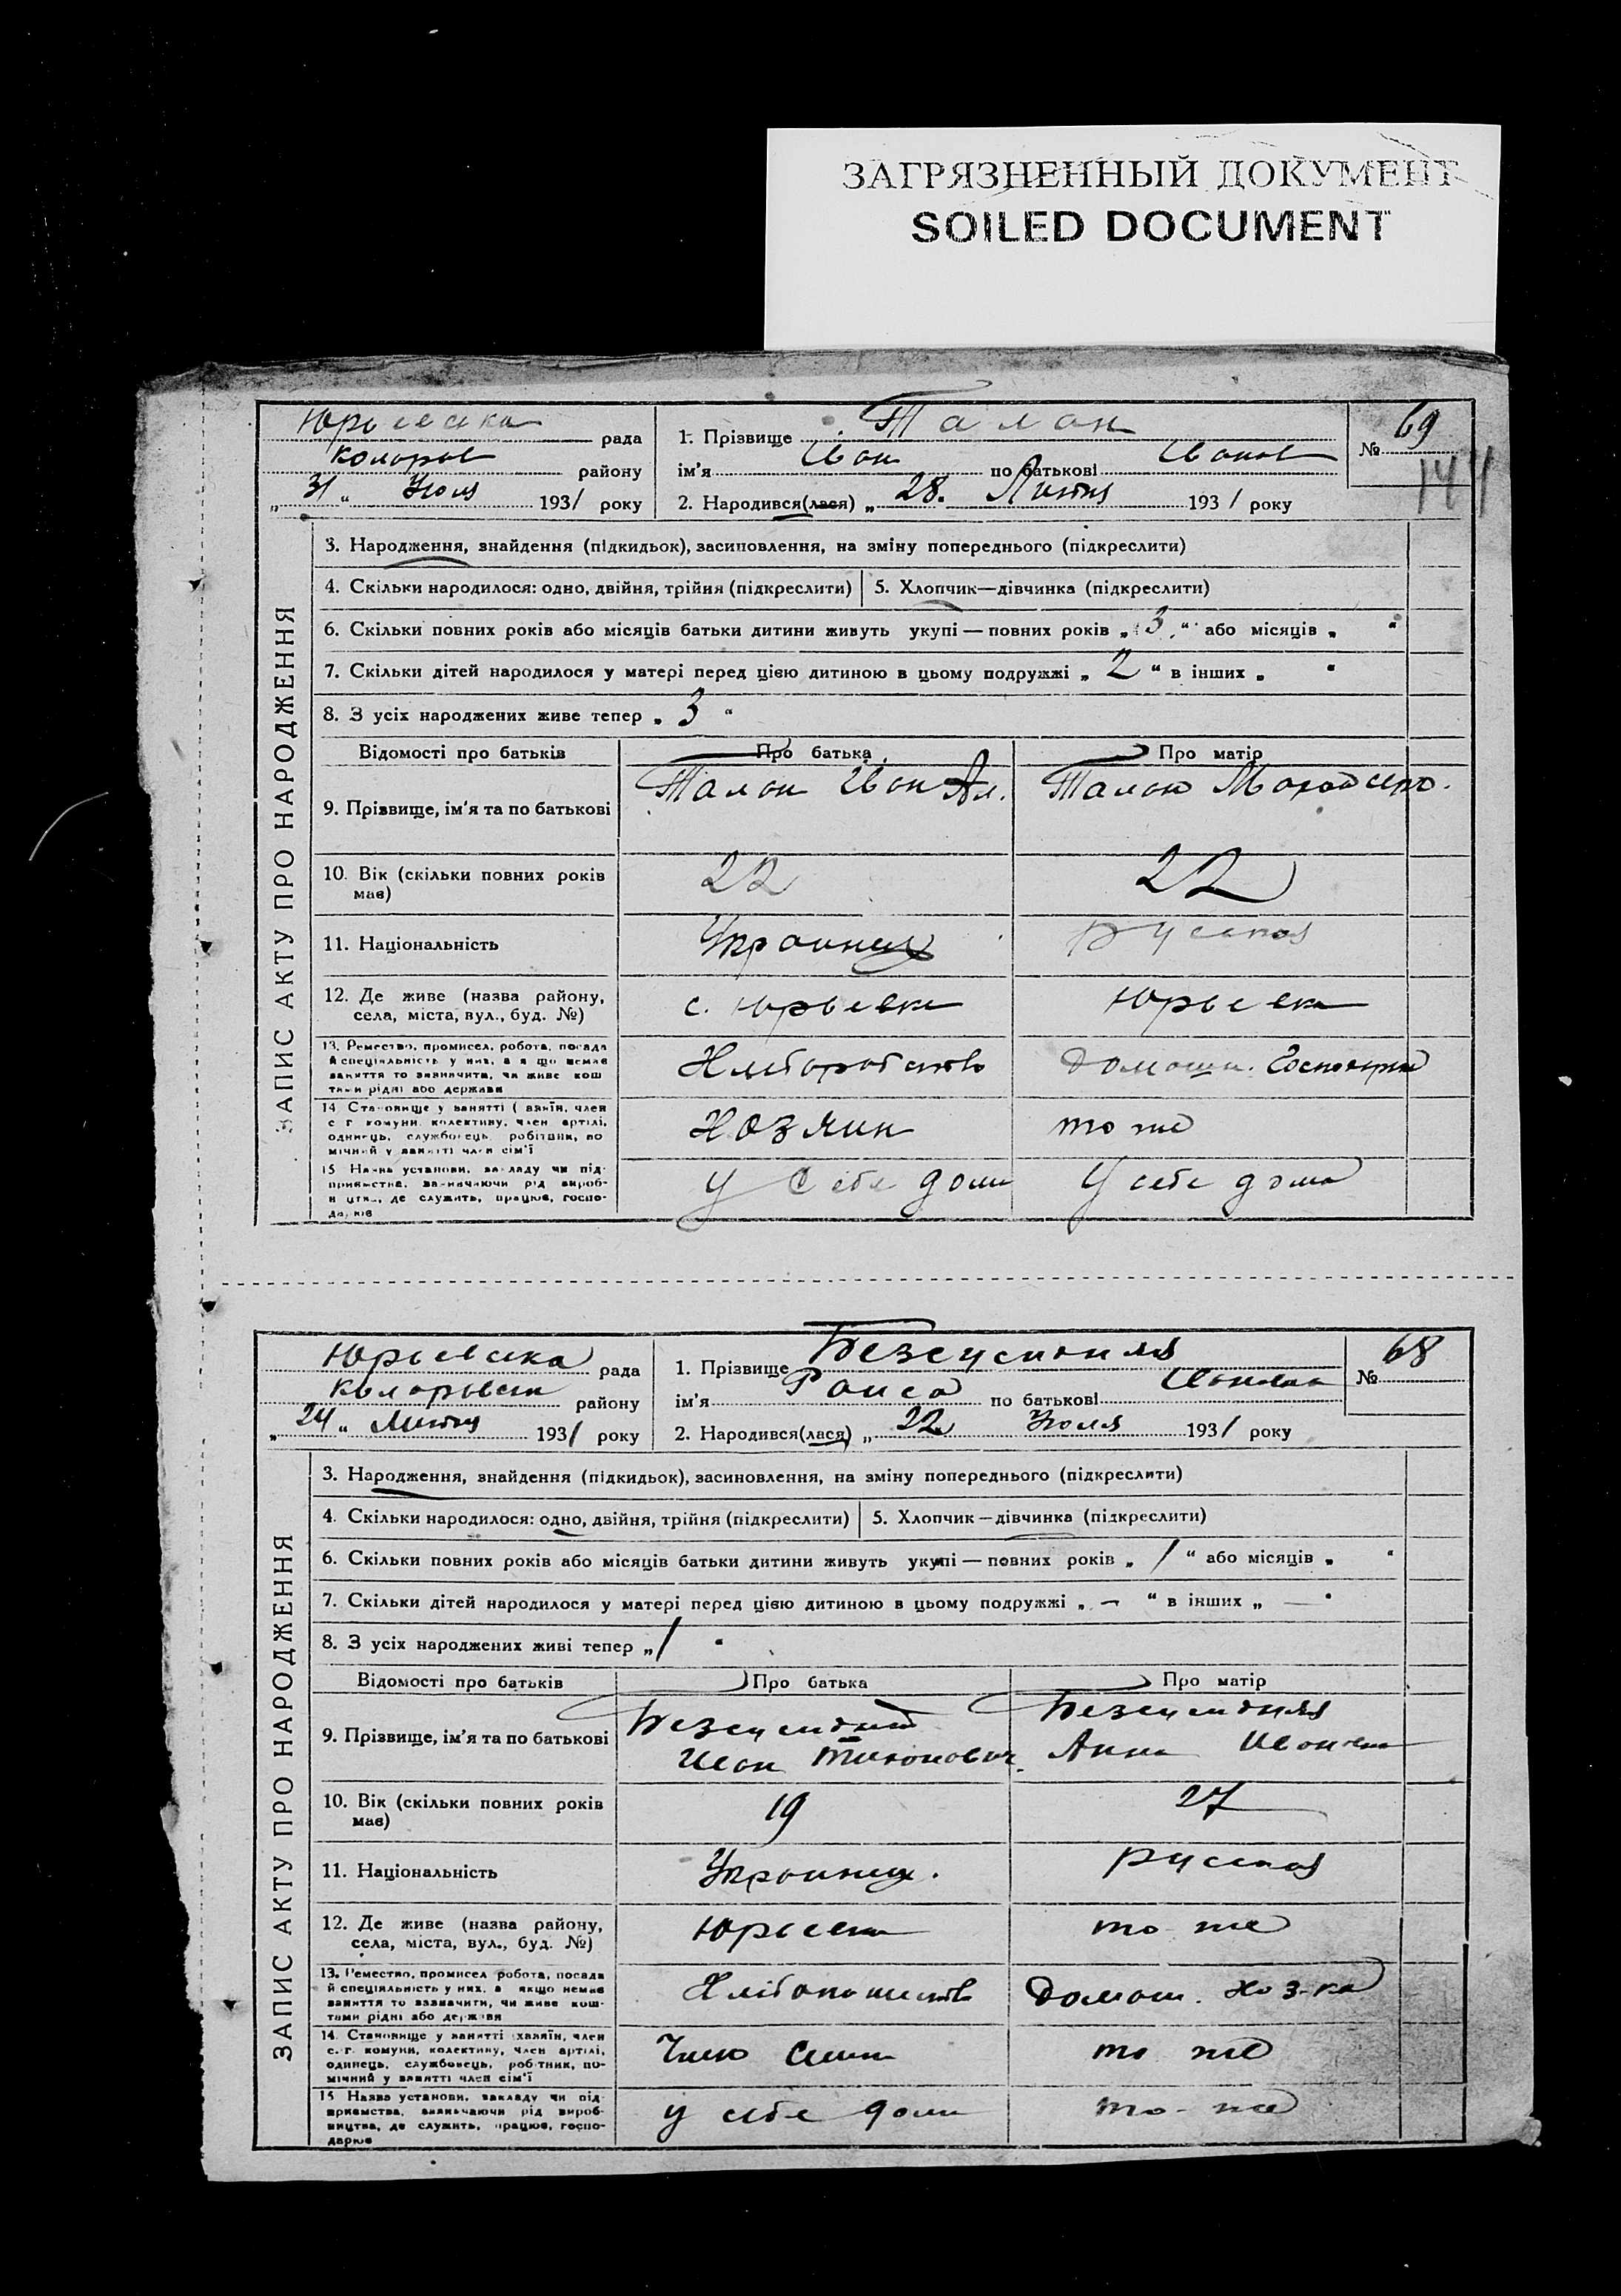 ЗАГРЯЗНЕННЫЙ ДОКУМЕНТ
SOILED DOCUMENT
ЗАПИС АКТУ ПРО НАРОДЖЕННЯ
рада
району
„31“ Июля 1931 року
1. Прізвище Талан
ім'я Иван по батькові Иванов
2. Народився(лася) „28. Липня 1931 року
№ 69
144
3. Народження, знайдення (підкидьок), засиновлення, на зміну попереднього (підкреслити)
4. Скільки народилося: одно, двійня, трійня (підкреслити) 5. Хлопчик—дівчинка (підкреслити)
6. Скільки повних років або місяців батьки дитини живуть укупі — повних років „3“ або місяців „ “
7. Скільки дітей народилося у матері перед цією дитиною в цьому подружжі „2“ в інших „ “
8. З усіх народжених живе тепер „3“
Відомості про батьків Про батька Про матір
9. Прізвище, ім'я та по батькові Талан Иван Ал. Талан
10. Вік (скільки повних років має) 22 22
11. Національність Украинец русская
12. Де живе (назва району, села, міста, вул., буд. №) с. Юрьевка Юрьевка
13. Ремество, промисел, робота, посада й спеціяльність у них, а якщо немає заняття то зазначити, чи живе коштами рідні або держави домашн.
14. Становище у занятті (хазяїн, член с. г. комуни, колективу, член артілі, одинець, службовець, робітник, помічний у занятті член сім'ї Хозяин то же
15. Назва установи, закладу чи підприємства, зазначаючи рід виробництва, де служить, працює, господарює у себе дома у себе дома
ЗАПИС АКТУ ПРО НАРОДЖЕННЯ
рада
району
„24“ Липня 1931 року
1. Прізвище
ім'я Раиса по батькові Ивановна
2. Народився(лася) „22 Июля 1931 року
№ 68
3. Народження, знайдення (підкидьок), засиновлення, на зміну попереднього (підкреслити)
4. Скільки народилося: одно, двійня, трійня (підкреслити) 5. Хлопчик—дівчинка (підкреслити)
6. Скільки повних років або місяців батьки дитини живуть укупі — повних років „1“ або місяців „ “
7. Скільки дітей народилося у матері перед цією дитиною в цьому подружжі „—“ в інших „—“
8. З усіх народжених живі тепер „1“
Відомості про батьків Про батька Про матір
9. Прізвище, ім'я та по батькові
Иван Тихонович Анна Ивановна
10. Вік (скільки повних років має) 19 27
11. Національність Украинец. русская
12. Де живе (назва району, села, міста, вул., буд. №) Юрьевка то же
13. Ремество, промисел робота, посада й спеціяльність у них, а якщо немає заняття то зазначити, чи живе коштами рідні або держави домаш. хоз-ка
14. Становище у занятті (хазяїн, член с. г. комуни, колективу, член артілі, одинець, службовець, робітник, помічний у занятті член сім'ї то же
15. Назва установи, закладу чи підприємства, зазначаючи рід виробництва, де служить, працює, господарює у себе дома то-же